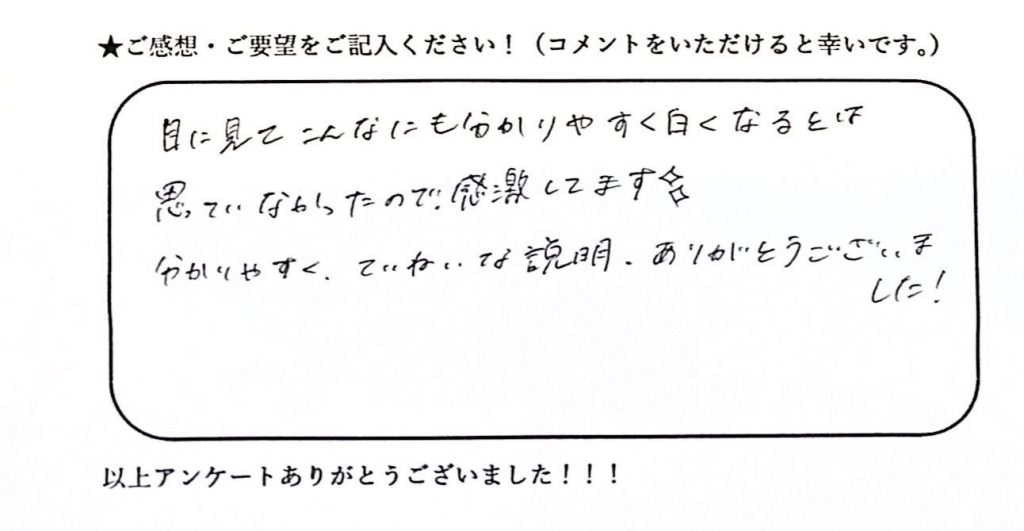 ★ご感想・ご要望をご記入ください！（コメントをいただけると幸いです。）
目に見てこんなにも分かりやすく白くなるとは
思っていなかったので、感激してます✨
分かりやすく、ていねいな説明、ありがとうございま
した！
以上アンケートありがとうございました！！！